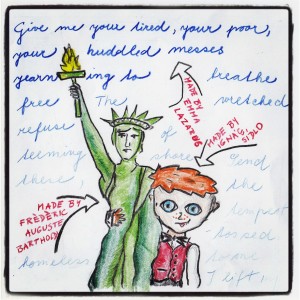 Give me your tired, your poor,
your huddled messes
yearning to breathe
free, The wretched
refuse of
teeming shore. Send
these, the
homeless tempest
tossed to me
I lift,
MADE BY
EMMA
LAZARUS
MADE BY
IGNAC
SIDLO
MADE BY
FRÉDÉRIC
AUGUSTE
BARTHOLDI